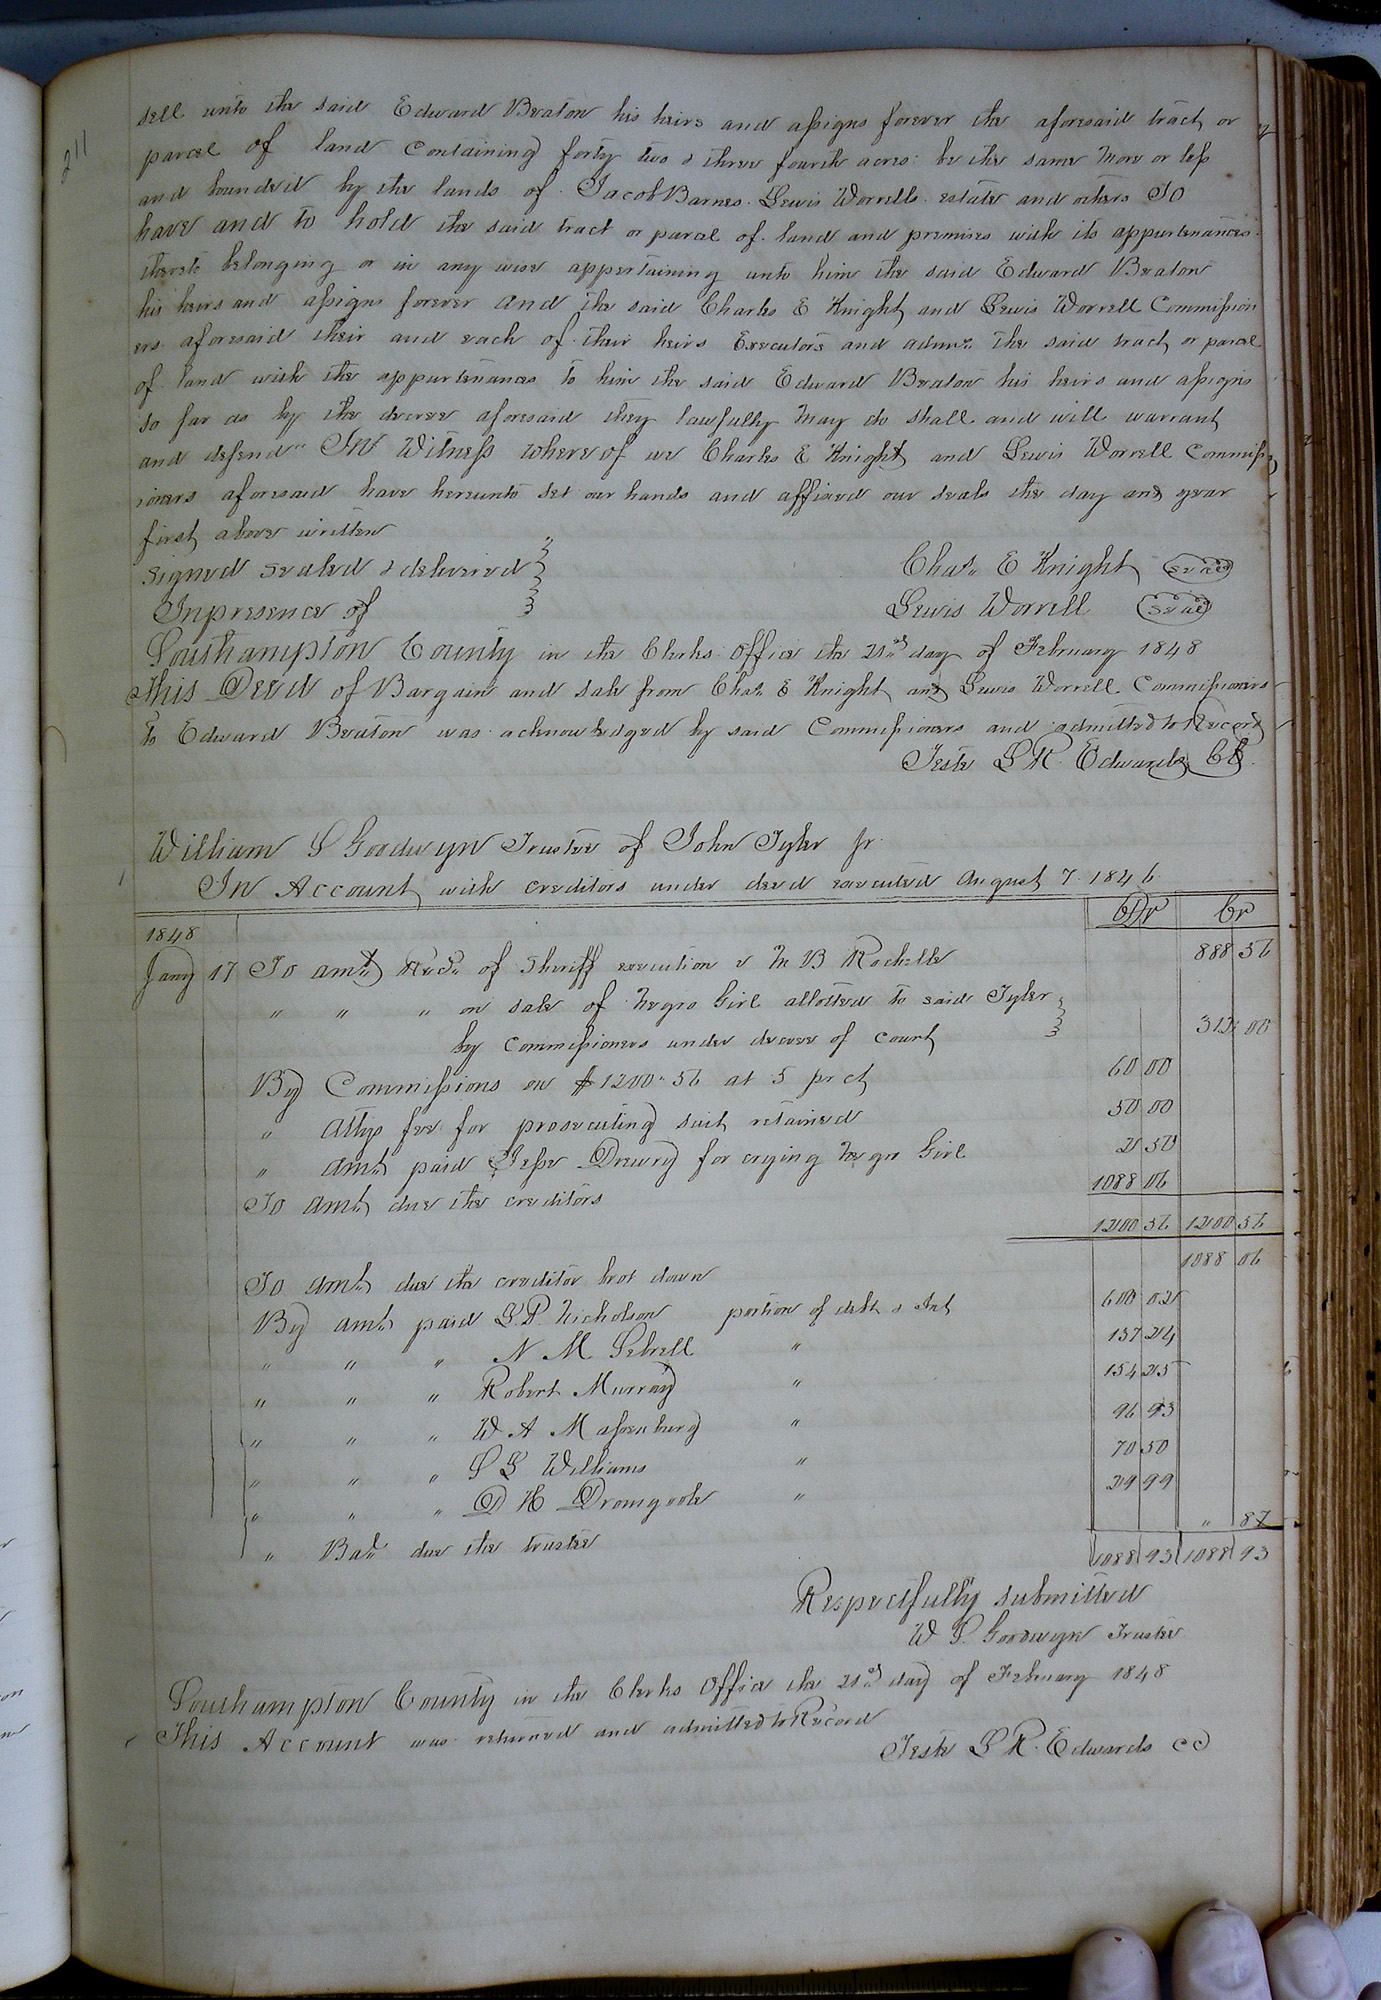 211
sell unto the said Edward Beaton his heirs and assigns forever the aforesaid tract or
parcel of land Containing forty two & three fourth acres: be the same More or less
and bounded by the lands of Jacob Barnes. Lewis Worrells estate and others To
have and to hold the said tract or parcel of land and premises with its appurtenances
thereto belonging or in any wise appertaining unto him the said Edward Beaton
his heirs and assigns forever and the said Charles E Knight and Lewis Worrell Commission
ers aforesaid their and each of their heirs Executors and admrs the said tract or parcel
of land with the appurtenances to him the said Edward Beaton his heirs and assigns
so far as by the decree aforesaid they lawfully may do shall and will warrant
and defend In Witness whereof we Charles E Knight and Lewis Worrell Commiss
ioners aforesaid have hereunto set our hands and affixed our seals the day and year
first above written
Signed sealed & delivered
Chas. E Knight seal
In presence of
Lewis Worrell seal
Southampton County in the Clerks Office the 21st day of February 1848
This Deed of Bargain and sale from Chas E Knight and Lewis Worrell Commissioners
to Edward Beaton was acknowledged by said Commissioners and admitted to Record
Teste L R Edwards CC
William S Goodwyn Trustee of John Tyler Jr.
In Account with creditors under deed executed August 7 1846
Dr Cr
1848
Jany 17 To amt Recd of Sheriff execution v M B Rochelle 888 56
" " " on sale of Negro Girl allotted to said Tyler
by commissioners under decree of court 312 00
By Commissions on $1200.56 at 5 pr ct 60 00
" Attys fee for prosecuting suit retained 50 00
" Amt paid Jesse Drewry for crying Negro Girl 2 50
To Amt due the creditors 1088 06
1200 56 1200 56
To Amt due the creditor brot down 1088 06
By amt paid L. P. Nicholson portion of debt & Int 600 02
" " " N M Sebrell " 137 24
" " " Robert Murray " 154 25
" " " W A Massenburg " 96 93
" " " S G Williams " 70 50
" " " D H Dromgoole " 29 99
" Bal. due the trustee " 87
1088 93 1088 93
Respectfully submitted
W S. Goodwyn Trustee
Southampton County in the Clerks Office the 21st day of February 1848
This Account was returned and admitted to Record
Teste L R. Edwards CC